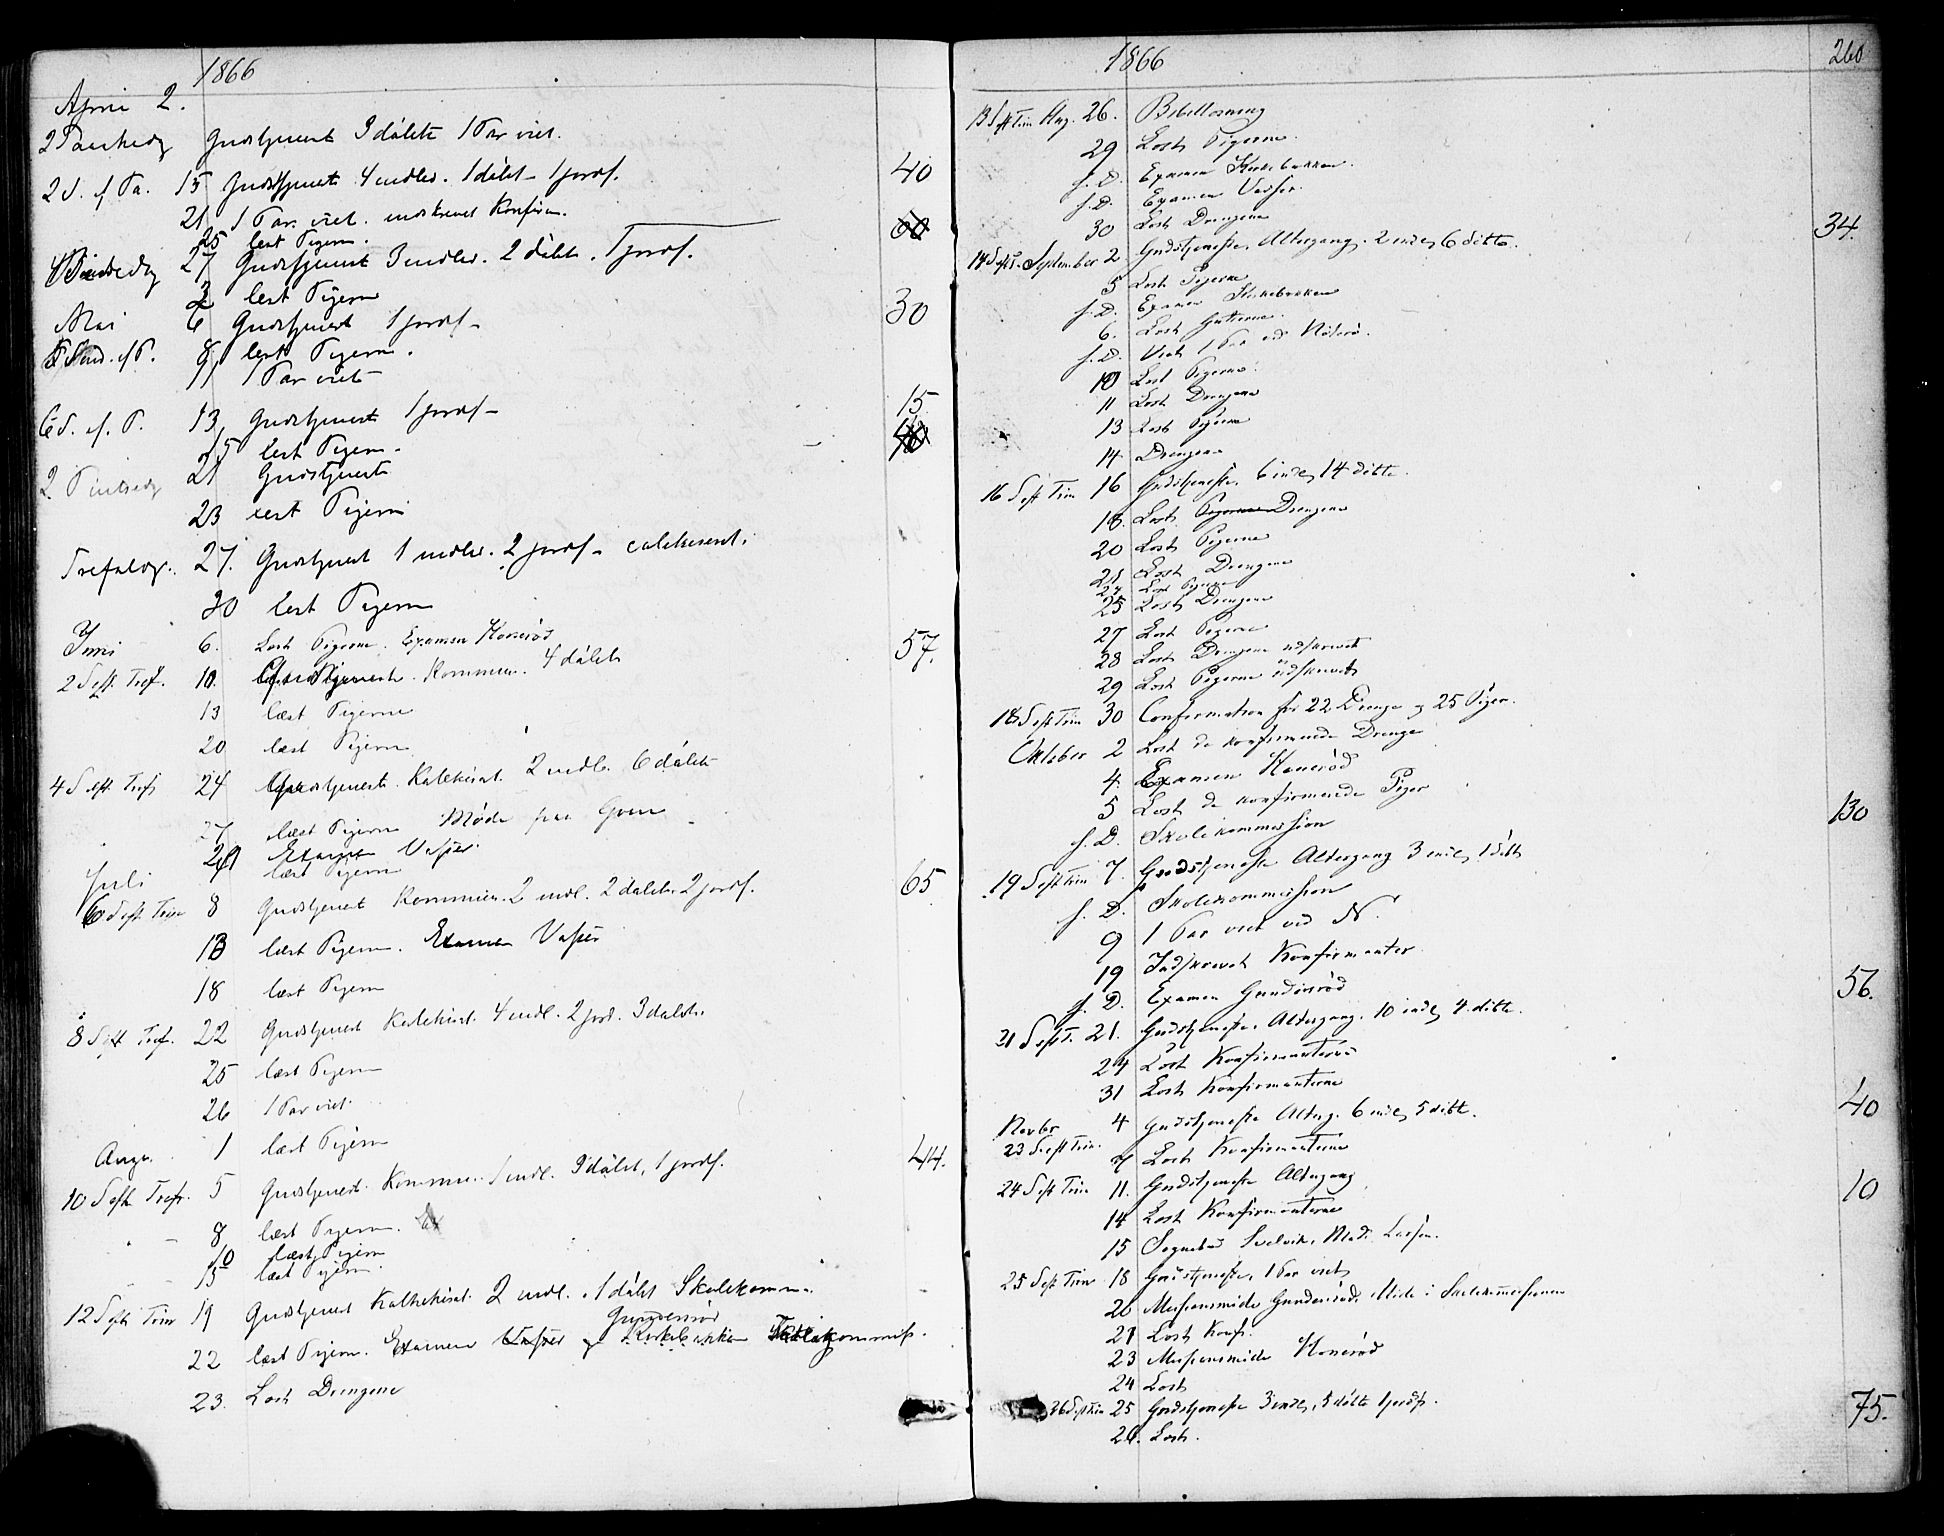 1866
April 2.
2 Paaskedg Gudstjenest 3 dôbte 1 Par viet.
2 S. e. Pa. 15 Gudstjenest 4 indlev. 1 døbt 1 jordf. 40
21 1 Par viet. indskrevet Konfirm.
25 læst Pigern.
27 Gudstjenest 3 indlev. 2 døbte. 1 jordf.
2 læst Pigern 30
Mai 6 Gudstjenest 1 jordf.
5 Sønd. e. P. 9 læst Pigern.
11 1 Par viet
6 S. e. P. 13 Gudstjenest 1 jordf. 15
15 læst Pigern.
2 Pintsedg 21 Gudstjenest
23 læst Pigern
Trefoldg. 27. Gudstjenest 1 indlev. 2 jordf. catekiseret.
30 læst Pigern
Juni 6. Læst Pigerne. Examen Hanerød 57.
2 S. eft. Tref. 10. Gudstjeneste. Kommun. 4 døbte
13 læst Pigerne
20 læst Pigern
4 S eft. Tref. 24 Gudstjeneste. Katekisat. 2 indl. 6 døbte
27 læst Pigern Møde paa
29 Examen Vasser.
Juli læst Pigern
6 S eft. Trin 8 Gudstjenest Kommun. 2 indl. 2 døbte. 2 jordf. 65
13 læst Pigern. Examen Vasser
18 læst Pigern
8 S eft Tref. 22 Gudstjenest Katekisat. 4 indl. 2 jord. 3 døbte.
25 læst Pigern
26 1 Par viet.
Aug. 1 læst Pigern
10 S eft Tref. 5 Gudstjenest. Kommun. 1 indl. 3 døbt, 1 jordf. 44.
8 læst Pigern.
10 læst Pigern
15 læst Pigern.
12 S eft Trin 19 Gudstjenest Kathekisat. 2 indl. 1 døbt Skolekomm.
Gundersrød
22 læst Pigern. Examen Vasser og Kirkebakken Skolekommiss.
23. Læst Drengene
1866 260
13 S eft Trin Aug. 26. Bibellæsning
29 Læst Pigerne.
s. D. Examen Kirkebakken.
s. D. Examen Vasser.
30 Læst Drengene
14 S eft T. September 2 Gudstjeneste. Altergang. 2 indl, 6 døbte. 34.
5 Læst Pigerne
s. D. Examen Kirkebakken
6. Læst Gutterne.
s. D. Viet 1 Par ved Nøterø.
10 Læst Pigerne.
11 Læst Drengene
13 Læst Pigerne
14 Drengene
16 Seft Trin 16 Gudstjeneste. 6 indl, 14 døbte.
18. Læst Pigerne Drengene
20 Læst Pigerne
21 Læst Drengene
24 Læst Pigerne
25 Læst Drengene
27 Læst Pigerne
28 Læst Drengene udskrevet
29 Læst Pigerne udskrevet
18 Seft Trin 30 Confirmation for 22 Drenge og 25 Piger.
Oktober 2 Læst de konfirmerede Drenge
4. Examen Hanerød
5 Læst de konfirmerede Piger
s. D. Skolekommission 130
19 Seft Trin 7. Gudstjeneste Altergang 3 indl, 1 døbt
s. D. Skolekommission
9 1 Par viet ved N.
19 Indskrevet Konfirmanter
s. D. Examen Gundersrød
21 Seft T. 21. Gudstjeneste. Altergang. 10 indl, 4 døbte. 56.
24 Læst Konfirmanterne
31 Læst Konfirmanterne
Novbr 4 Gudstjeneste Alterg. 6 indl, 5 døbt. 40
23 S eft Trin. 7 Læst Konfirmanterne
24 Seft Trin 11. Gudstjeneste Altergang 10
14 Læst Konfirmanterne
15 Sognebud Svelvik, Mad. Larsen.
25 Seft Trin 18 Gudstjeneste, 1 Par viet,
20 Missionsmøde Gundersrød. Møde i Skolekommissionen
21 Læst Konf.
23 Missionsmøde Hanerød
24 Læst
26 Seft Trin 25 Gudstjeneste 3 indl, 5 døbte 1 jordf. 75.
26. Læst.